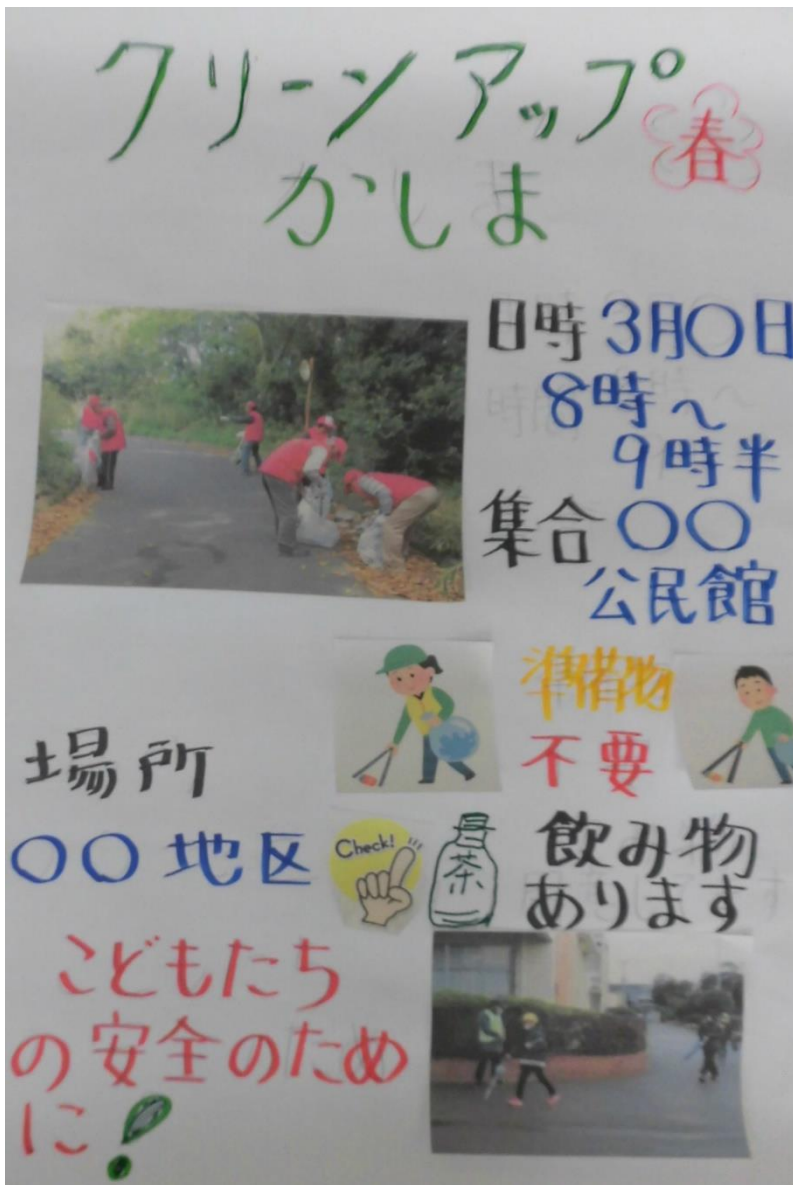 クリーンアップ
春
かしま
日時 3月〇日
8時〜
9時半
集合 〇〇
公民館
準備物
不要
場所
〇〇地区
Check!
茶
飲み物
あります
こどもたち
の安全のため
に!